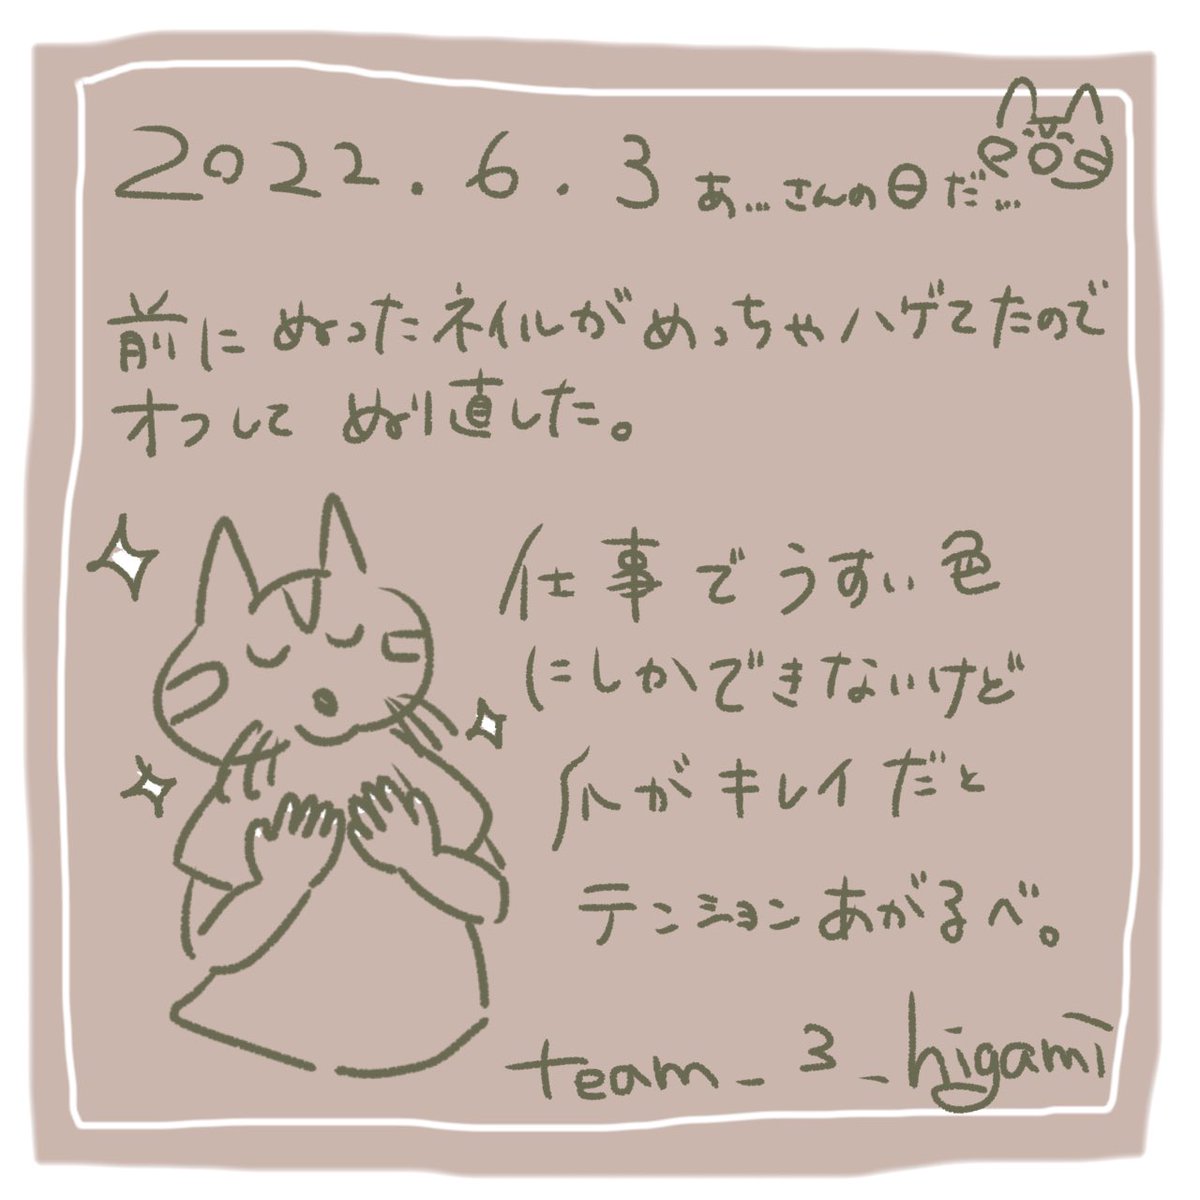 2022.6.3 あ…さんの日だ…
前にぬったネイルがめっちゃハゲてたので
オフして ぬり直した。
仕事でうすい色
にしかできないけど
爪がキレイだと
テンションあがるべ。
team_3_higami